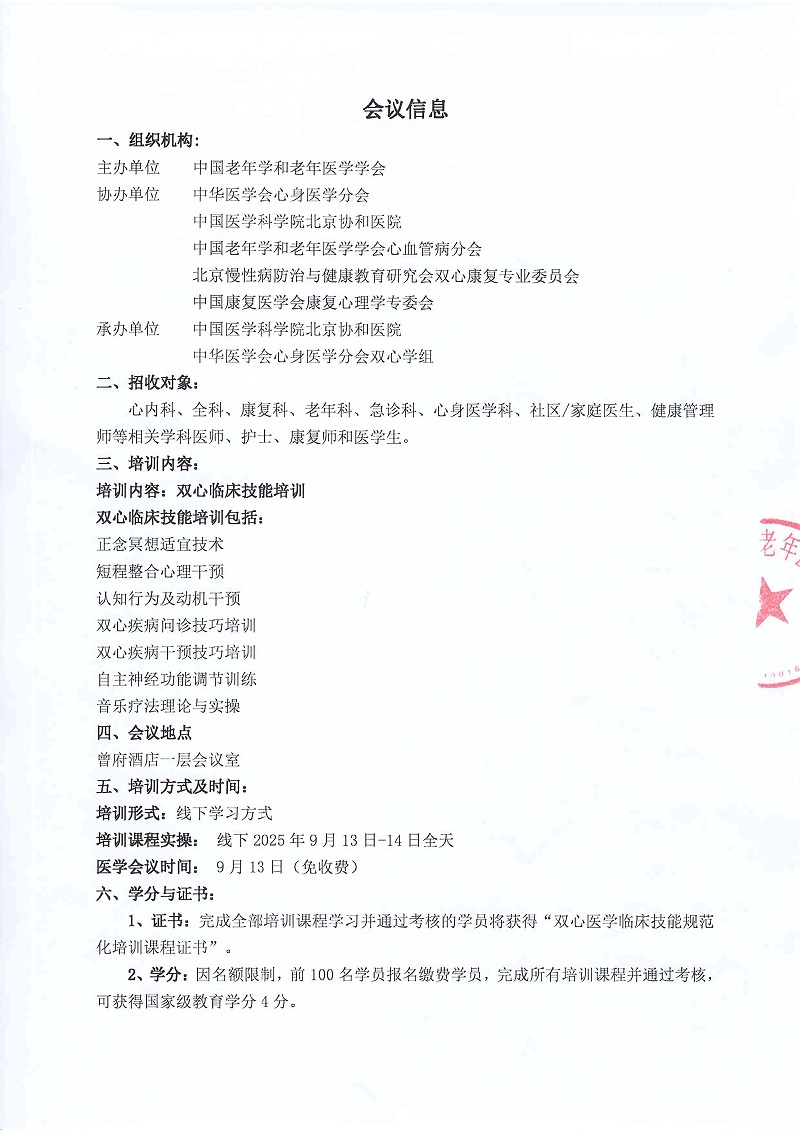 会议信息
一、组织机构:
主办单位 中国老年学和老年医学学会
协办单位 中华医学会心身医学分会
中国医学科学院北京协和医院
中国老年学和老年医学学会心血管病分会
北京慢性病防治与健康教育研究会双心康复专业委员会
中国康复医学会康复心理学专委会
承办单位 中国医学科学院北京协和医院
中华医学会心身医学分会双心学组
二、招收对象:
心内科、全科、康复科、老年科、急诊科、心身医学科、社区/家庭医生、健康管理
师等相关学科医师、护士、康复师和医学生。
三、培训内容:
培训内容: 双心临床技能培训
双心临床技能培训包括:
正念冥想适宜技术
短程整合心理干预
认知行为及动机干预
双心疾病问诊技巧培训
双心疾病干预技巧培训
自主神经功能调节训练
音乐疗法理论与实操
四、会议地点
曾府酒店一层会议室
五、培训方式及时间:
培训形式: 线下学习方式
培训课程实操: 线下 2025 年 9 月 13 日-14 日全天
医学会议时间: 9 月 13 日（免收费）
六、学分与证书:
1、证书: 完成全部培训课程学习并通过考核的学员将获得“双心医学临床技能规范
化培训课程证书”。
2、学分: 因名额限制, 前 100 名学员报名缴费学员, 完成所有培训课程并通过考核,
可获得国家级教育学分 4 分。
老年